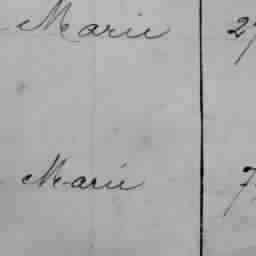 Marie 27
Marie 7